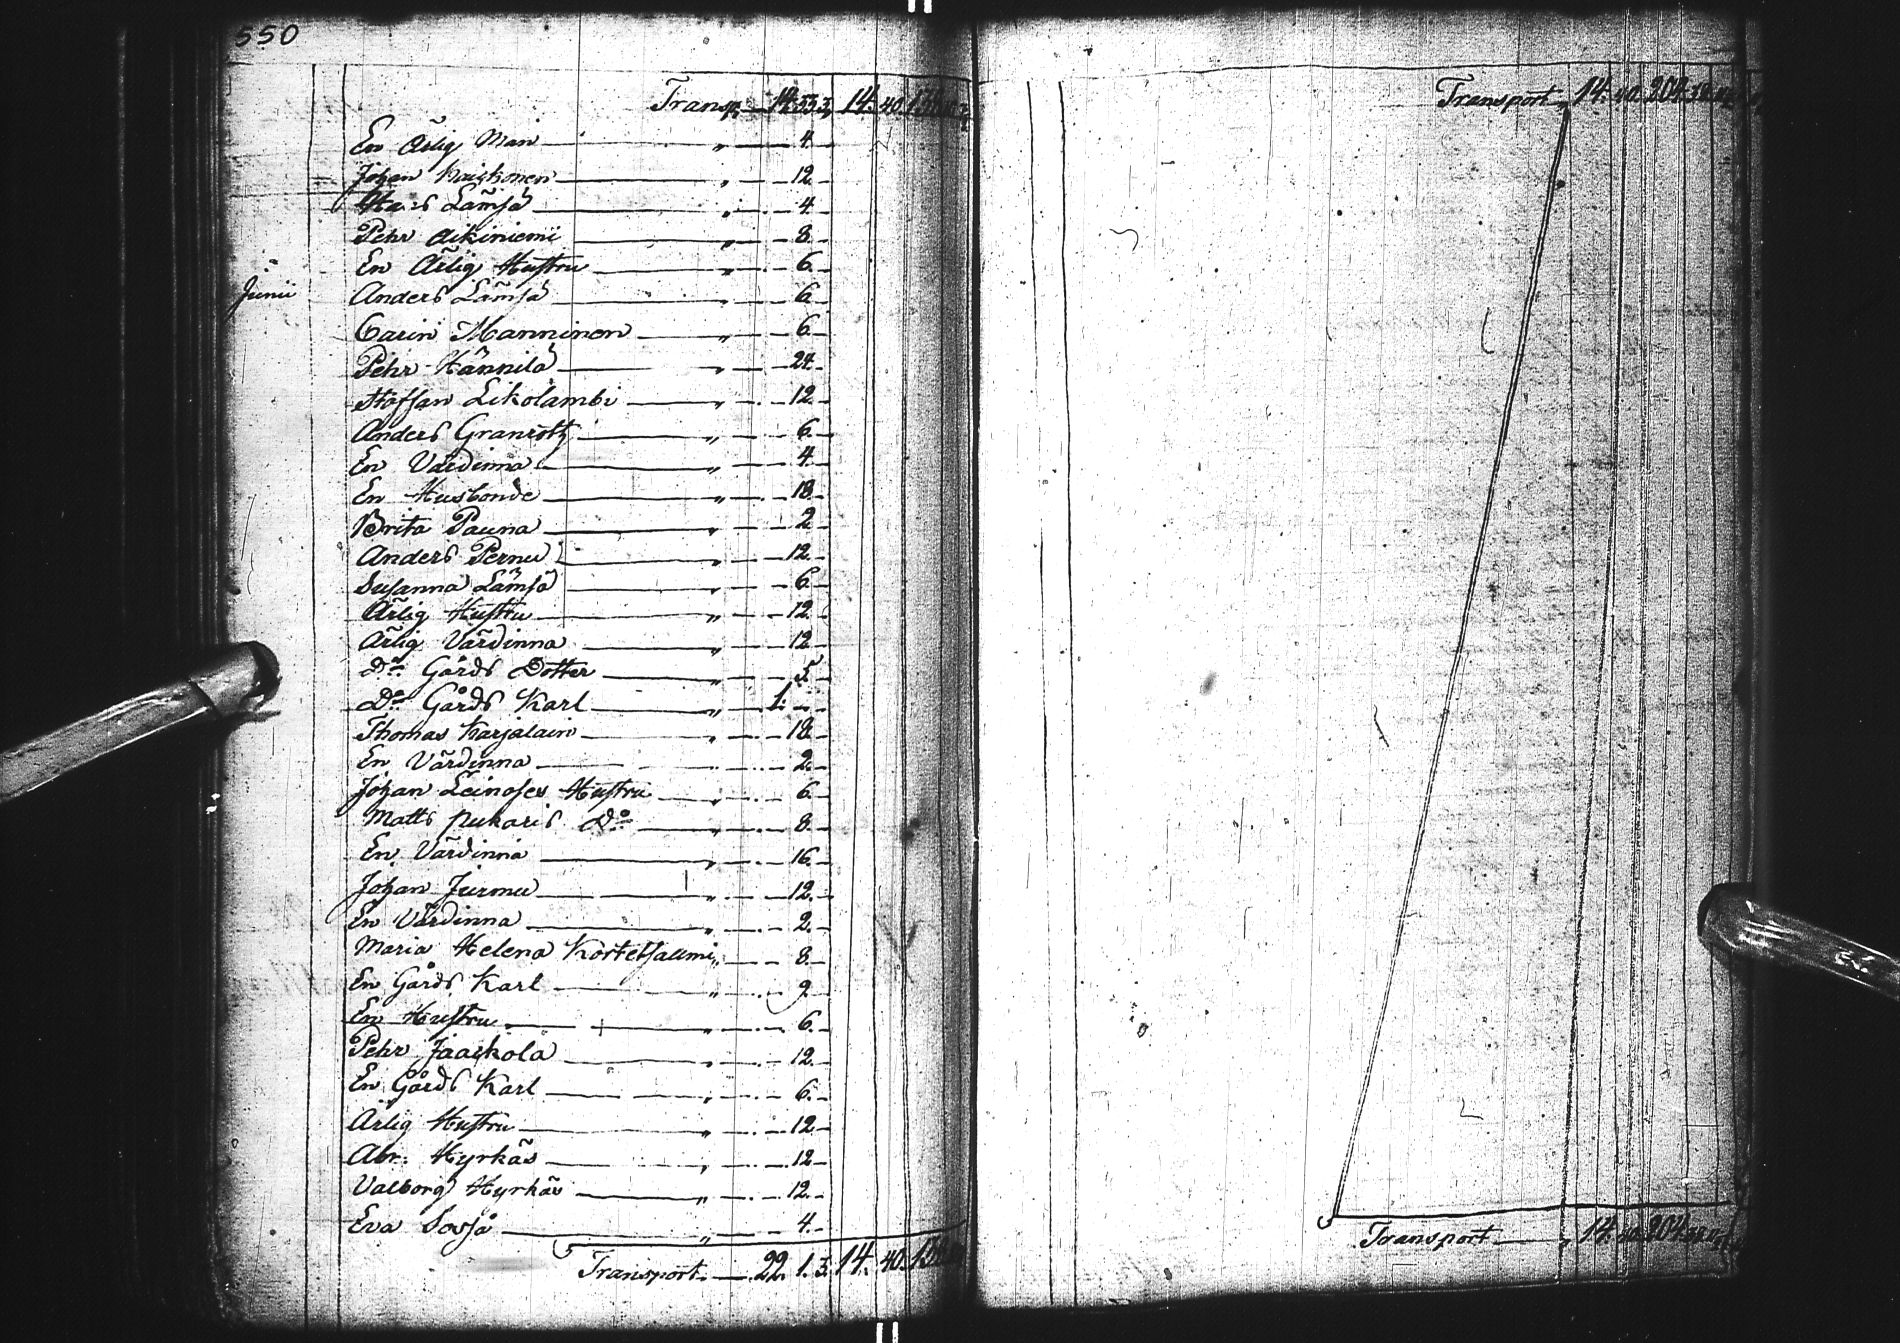 550
Transp. — 14. 33. 3. 14. 40.
En Ärlig Man — „ — 4. —
Johan Kaiskonen — „ — 12. —
Mats Lämsä — „ — 4. —
Pehr Aikiniemi — „ — 8. —
En Ärlig Hustru — „ — 6. —
Junii Anders Lämsä — „ — 6. —
Carin Manninen — „ — 6. —
Pehr Hännilä — „ — 24. —
Staffan Likolambi — „ — 12. —
Anders Granroth — „ — 6. —
En Värdinna — „ — 4. —
En Husbonde — „ — 18. —
Brita Pauna — „ — 2. —
Anders Pernu — „ — 12. —
Susanna Lämsä — „ — 6. —
Ärlig Hustru — „ — 12. —
Ärlig Värdinna — „ — 12. —
Do Gårds Dotter — „ — 5. —
Do Gårds Karl — „ — 1. — —
Thomas Karjalain — „ — 18. —
En Värdinna — „ — 2. —
Johan Leinoses Hustru — „ — 6. —
Matts pukaris Do — „ — 8. —
En Värdinna — „ — 16. —
Johan Jurmu — „ — 12. —
En Värdinna — „ — 2. —
Maria Helena Kortetsallmi „ — 8. —
En Gårds Karl — „ — 9. —
En Hustru — „ — 6. —
Pehr Jaaskola — „ — 12. —
En Gårds Karl — „ — 6. —
Ärlig Hustru — „ — 12. —
Abr. Hyrkäs — „ — 12. —
Valborg Hyrkäs — „ — 12. —
Eva Sovjå — „ — 4. —
Transport. — 22. 1. 3. 14. 40.
Transport „ 14. 40. 204. 38.
Transport — „ 14. 40. 204. 38.